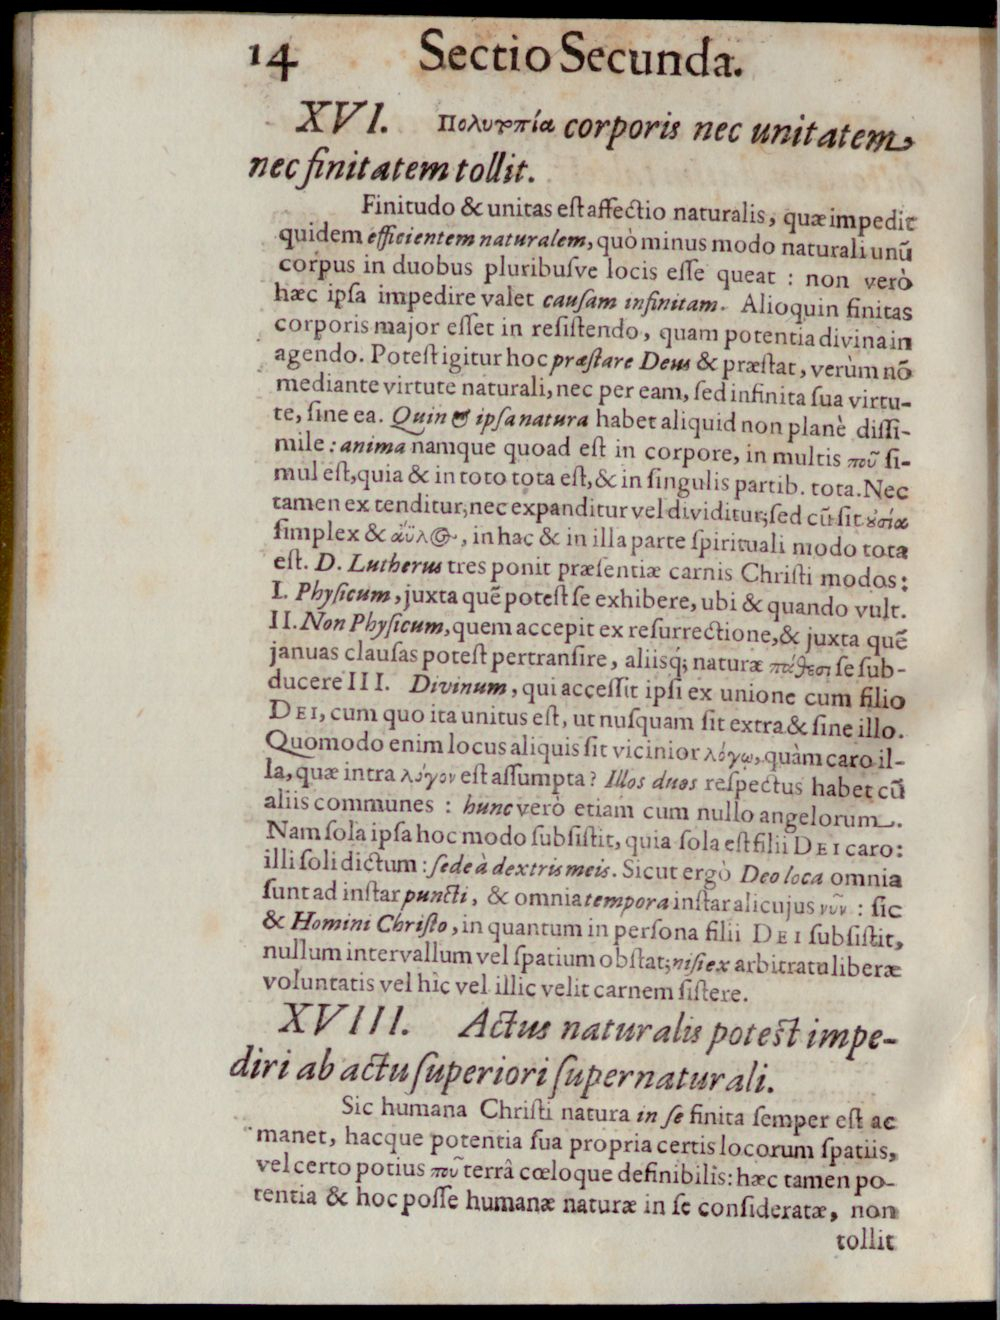 14 Sectio Secunda.
XVI. Πολυτοπία corporis nec unitatem
nec finitatem tollit.
Finitudo & unitas est affectio naturalis, quæ impedit
quidem efficientem naturalem, quò minus modo naturali unū
corpus in duobus pluribusve locis esse queat : non verò
hæc ipsa impedire valet causam infinitam. Alioquin finitas
corporis major esset in resistendo, quam potentia divina in
agendo. Potest igitur hoc præstare Deus & præstat, verùm nō
mediante virtute naturali, nec per eam, sed infinita sua virtu-
te, sine ea. Quin & ipsa natura habet aliquid non planè dissi-
mile : anima namque quoad est in corpore, in multis ποῦ si-
mul est, quia & in toto tota est, & in singulis partib. tota. Nec
tamen extenditur, nec expanditur vel dividitur; sed cū sit ȣσία
simplex & ἄϋλος, in hac & in illa parte spirituali modo tota
est. D. Lutherus tres ponit præsentiæ carnis Christi modos:
I. Physicum, juxta quē potest se exhibere, ubi & quando vult.
II. Non Physicum, quem accepit ex resurrectione, & juxta quē
januas clausas potest pertransire, aliisq; naturæ πάθεσι se sub-
ducere III. Divinum, qui accessit ipsi ex unione cum filio
DEI, cum quo ita unitus est, ut nusquam sit extra & sine illo.
Quomodo enim locus aliquis sit vicinior λόγω, quàm caro il-
la, quæ intra λόγον est assumpta? Illos duos respectus habet cū
aliis communes : hunc verò etiam cum nullo angelorum.
Nam sola ipsa hoc modo subsistit, quia sola est filii DEI caro:
illi soli dictum : sede à dextris meis. Sicut ergò Deo loca omnia
sunt ad instar puncti, & omnia tempora instar alicujus νῦν : sic
& Homini Christo, in quantum in persona filii DEI subsistit,
nullum intervallum vel spatium obstat; nisi ex arbitratu liberæ
voluntatis vel hìc vel illic velit carnem sistere.
XVIII. Actus naturalis potest impe-
diri ab actu superiori supernaturali.
Sic humana Christi natura in se finita semper est ac
manet, hacque potentia sua propria certis locorum spatiis,
vel certo potius ποῦ terrâ cœloque definibilis: hæc tamen po-
tentia & hoc posse humanæ naturæ in se consideratæ, non
tollit